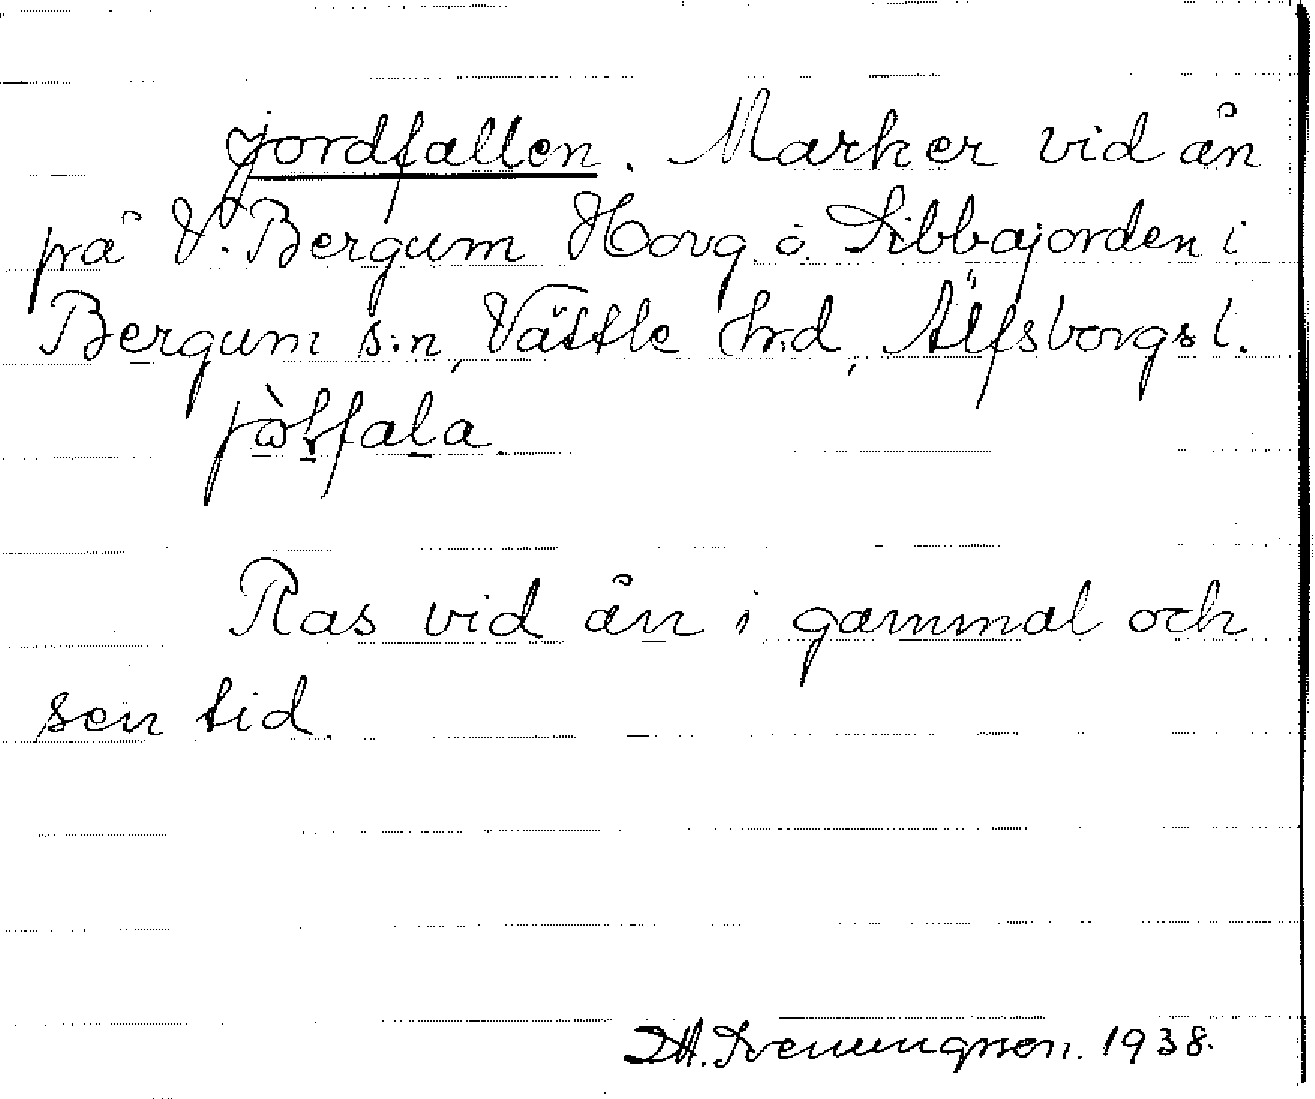 Jordfallen. Marker vid ån
på V. Bergum Horg. o. Sibbajorden i
Bergum s:n, Vättle hrd, Älfsborgs l.

Ras vid ån i gammal och
sen tid.
Svenungsson. 1938.